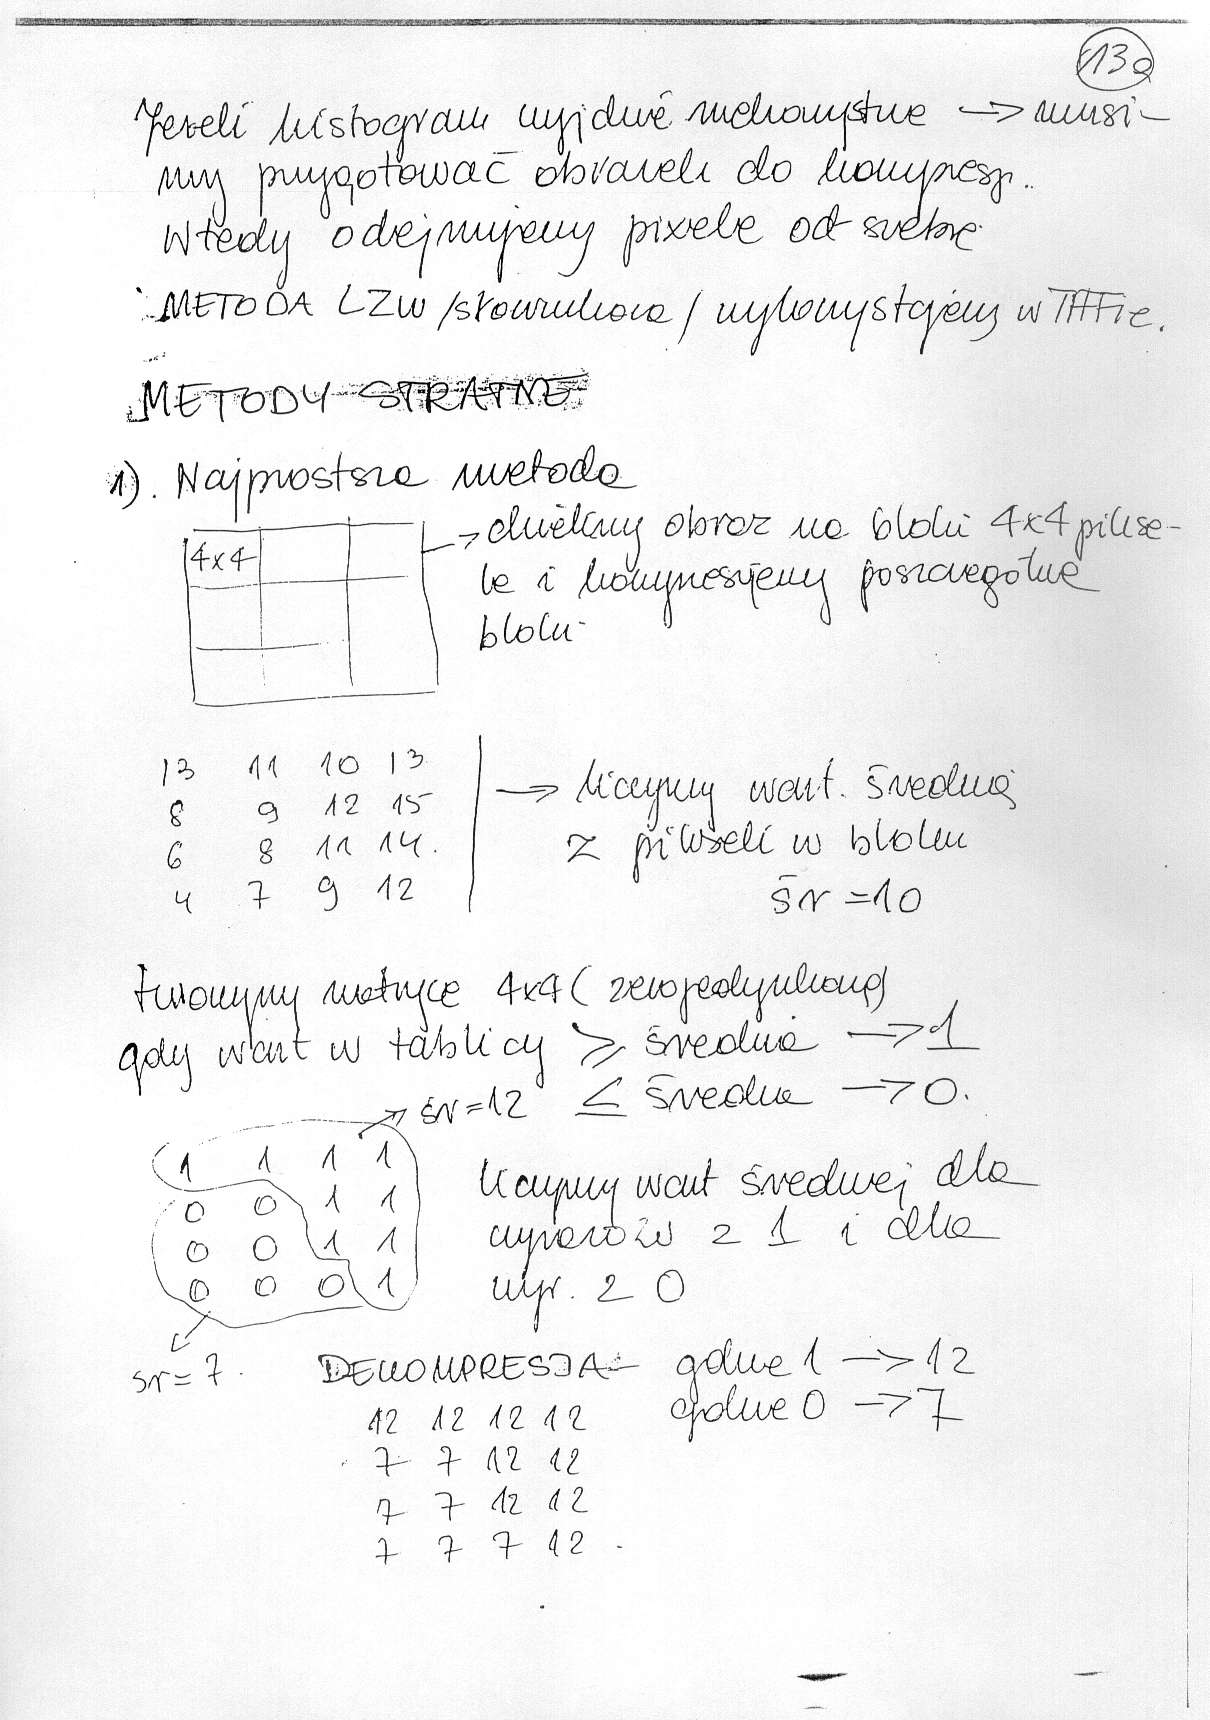 13a
Jeżeli histogram wyjdzie niekorzystne → musi-
my przygotować obrazek do kompresji.
Wtedy odejmujemy pixele od siebie
METODA LZW /słownikowa/ wykorzystujemy w TIFFie.
METODY STRATNE
1). Najprostsza metoda
4x4
→ dzielimy obraz na bloki 4x4 pikse-
le i kompresujemy poszczególne
bloki
13 11 10 13
8 9 12 15
6 8 11 14.
4 7 9 12
→ liczymy wart. średnią
z pikseli w bloku
śr = 10
tworzymy matryce 4x4 (zerojedynkową)
gdy wart w tablicy ⩾ średnia → 1
≤ średnia → 0.
→ śr = 12
1 1 1 1
0 0 1 1
0 0 1 1
0 0 0 1
liczymy wart średniej dla
wyrazów z 1 i dla
wyr. z 0
śr = 7.
DEKOMPRESJA - gdzie 1 → 12
gdzie 0 → 7
12 12 12 12
7 7 12 12
7 7 12 12
7 7 7 12